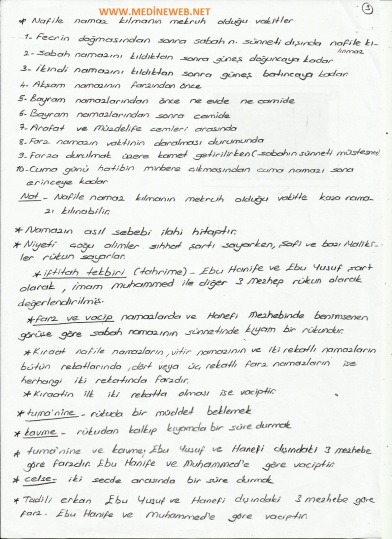 www.MEDINEWEB.NET
3
* Nafile namaz kılmanın mekruh olduğu vakitler
1- Fecrin doğmasından sonra sabah n. sünneti dışında nafile kı-
lınmaz
2- Sabah namazını kıldıktan sonra güneş doğuncaya kadar
3- İkindi namazını kıldıktan sonra güneş batıncaya kadar
4- Akşam namazının farzından önce
5- Bayram namazlarından önce ne evde ne camide
6- Bayram namazlarından sonra camide
7- Arafat ve Müzdelife cemleri arasında
8- Farz namazın vaktinin daralması durumunda
9- Farza durulmak üzere kamet getirilirken (sabahın sünneti müstesna)
10- Cuma günü hatibin minbere çıkmasından cuma namazı sona
erinceye kadar
Not - Nafile namaz kılmanın mekruh olduğu vakitte kaza nama-
zı kılınabilir.
* Namazın asıl sebebi ilahi hitaptır.
* Niyeti çoğu alimler sıhhat şartı sayarken, Şafi ve bazı Maliki-
ler rükun sayarlar.
* iftitah tekbiri (tahrime) - Ebu Hanife ve Ebu Yusuf şart
olarak, imam muhammed ile diğer 3 mezhep rükun olarak
değerlendirilmiş.
* farz ve vacip namazlarda ve Hanefi Mezhebinde benimsenen
görüşe göre sabah namazının sünnetinde kıyam bir rükundur.
* Kıraat nafile namazların, vitir namazının ve iki rekatlı namazların
bütün rekatlarında, dört veya üç rekatlı farz namazların ise
herhangi iki rekatında farzdır.
* Kıraatin ilk iki rekatta olması ise vaciptir.
* tuma'nine - rükuda bir müddet beklemek
* kavme - rükudan kalkıp kıyamda bir süre durmak
* tuma'nine ve kavme; Ebu Yusuf ve Hanefi dışındaki 3 mezhebe
göre farzdır. Ebu Hanife ve Muhammed'e göre vaciptir.
* celse - iki secde arasında bir süre durmak
* Tadili erkan Ebu Yusuf ve Hanefi dışındaki 3 mezhebe göre
farz. Ebu Hanife ve Muhammed'e göre vaciptir.